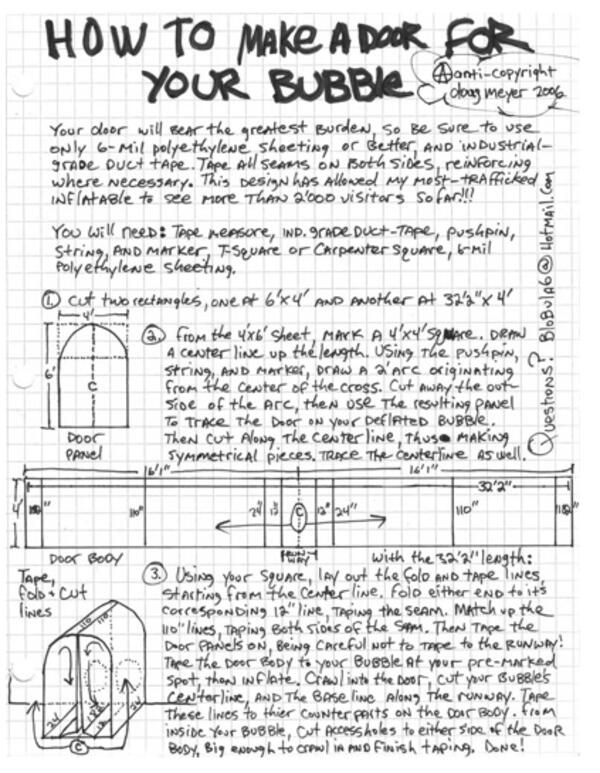 HOW TO MAKE A DOOR FOR
YOUR BUBBLE
A anti-copyright
doug meyer 2006
Your door will bear the greatest burden, so be sure to use
only 6-mil polyethylene sheeting or better, and industrial-
grade duct tape. Tape all seams on both sides, reinforcing
where necessary. This design has allowed my most-trafficked
inflatable to see more than 2'000 visitors so far!!!
You will need: Tape measure, ind. grade duct-tape, pushpin,
string, and marker, T-square or carpenter square, 6-mil
polyethylene sheeting.
Questions? BloBulab@hotmail.com
1. Cut two rectangles, one at 6'x4' and another at 32'2"x4'
4'
6'
C
DOOR
PANEL
2. From the 4'x6' sheet, mark a 4'x4' square. Draw
a center line up the length. Using the pushpin,
string, and marker, draw a 2' arc originating
from the center of the cross. Cut away the out-
side of the arc, then use the resulting panel
to trace the door on your deflated bubble.
Then cut along the centerline, thus making
symmetrical pieces. Trace the centerline as well.
16'1" 16'1"
32'2"
4' 110" 24" 12" C 12" 24" 110"
DOOR BODY
RUNWAY
Tape,
fold + cut
lines
110 110
24
C
With the 32'2" length:
3. Using your square, lay out the fold and tape lines,
starting from the center line. Fold either end to it's
corresponding 12" line, taping the seam. Match up the
110" lines, taping both sides of the seam. Then tape the
door panels on, being careful not to tape to the runway!
Tape the door body to your bubble at your pre-marked
spot, then inflate. Crawl into the door, cut your bubble's
centerline, and the base line along the runway. Tape
these lines to thier counterparts on the door body. From
inside your bubble, cut access holes to either side of the door
body, big enough to crawl in and finish taping. Done!